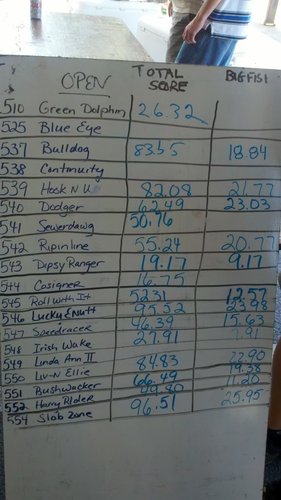 OPEN TOTAL SCORE BIG FISH
510 Green Dolphin 26.32
525 Blue Eye
537 Bulldog 83.55 18.84
538 Continuity
539 Hook N U 82.08 21.77
540 Dodger 62.49 23.03
541 Sewerdawg 50.76
542 Ripinline 55.24 20.77
543 Dipsy Ranger 19.17 9.17
544 Cosigner 16.75
545 Roll With It 52.31 12.57
546 Lucky Enuff 95.52 23.98
547 Speedracer 46.39 15.63
548 Irish Wake 27.91 7.91
549 Linda Ann II 84.83 22.90
550 Liv-N Ellie 66.49 19.38
551 Bushwacker 49.80 11.20
552 Harry Rider 96.51 25.95
554 Slab Zone